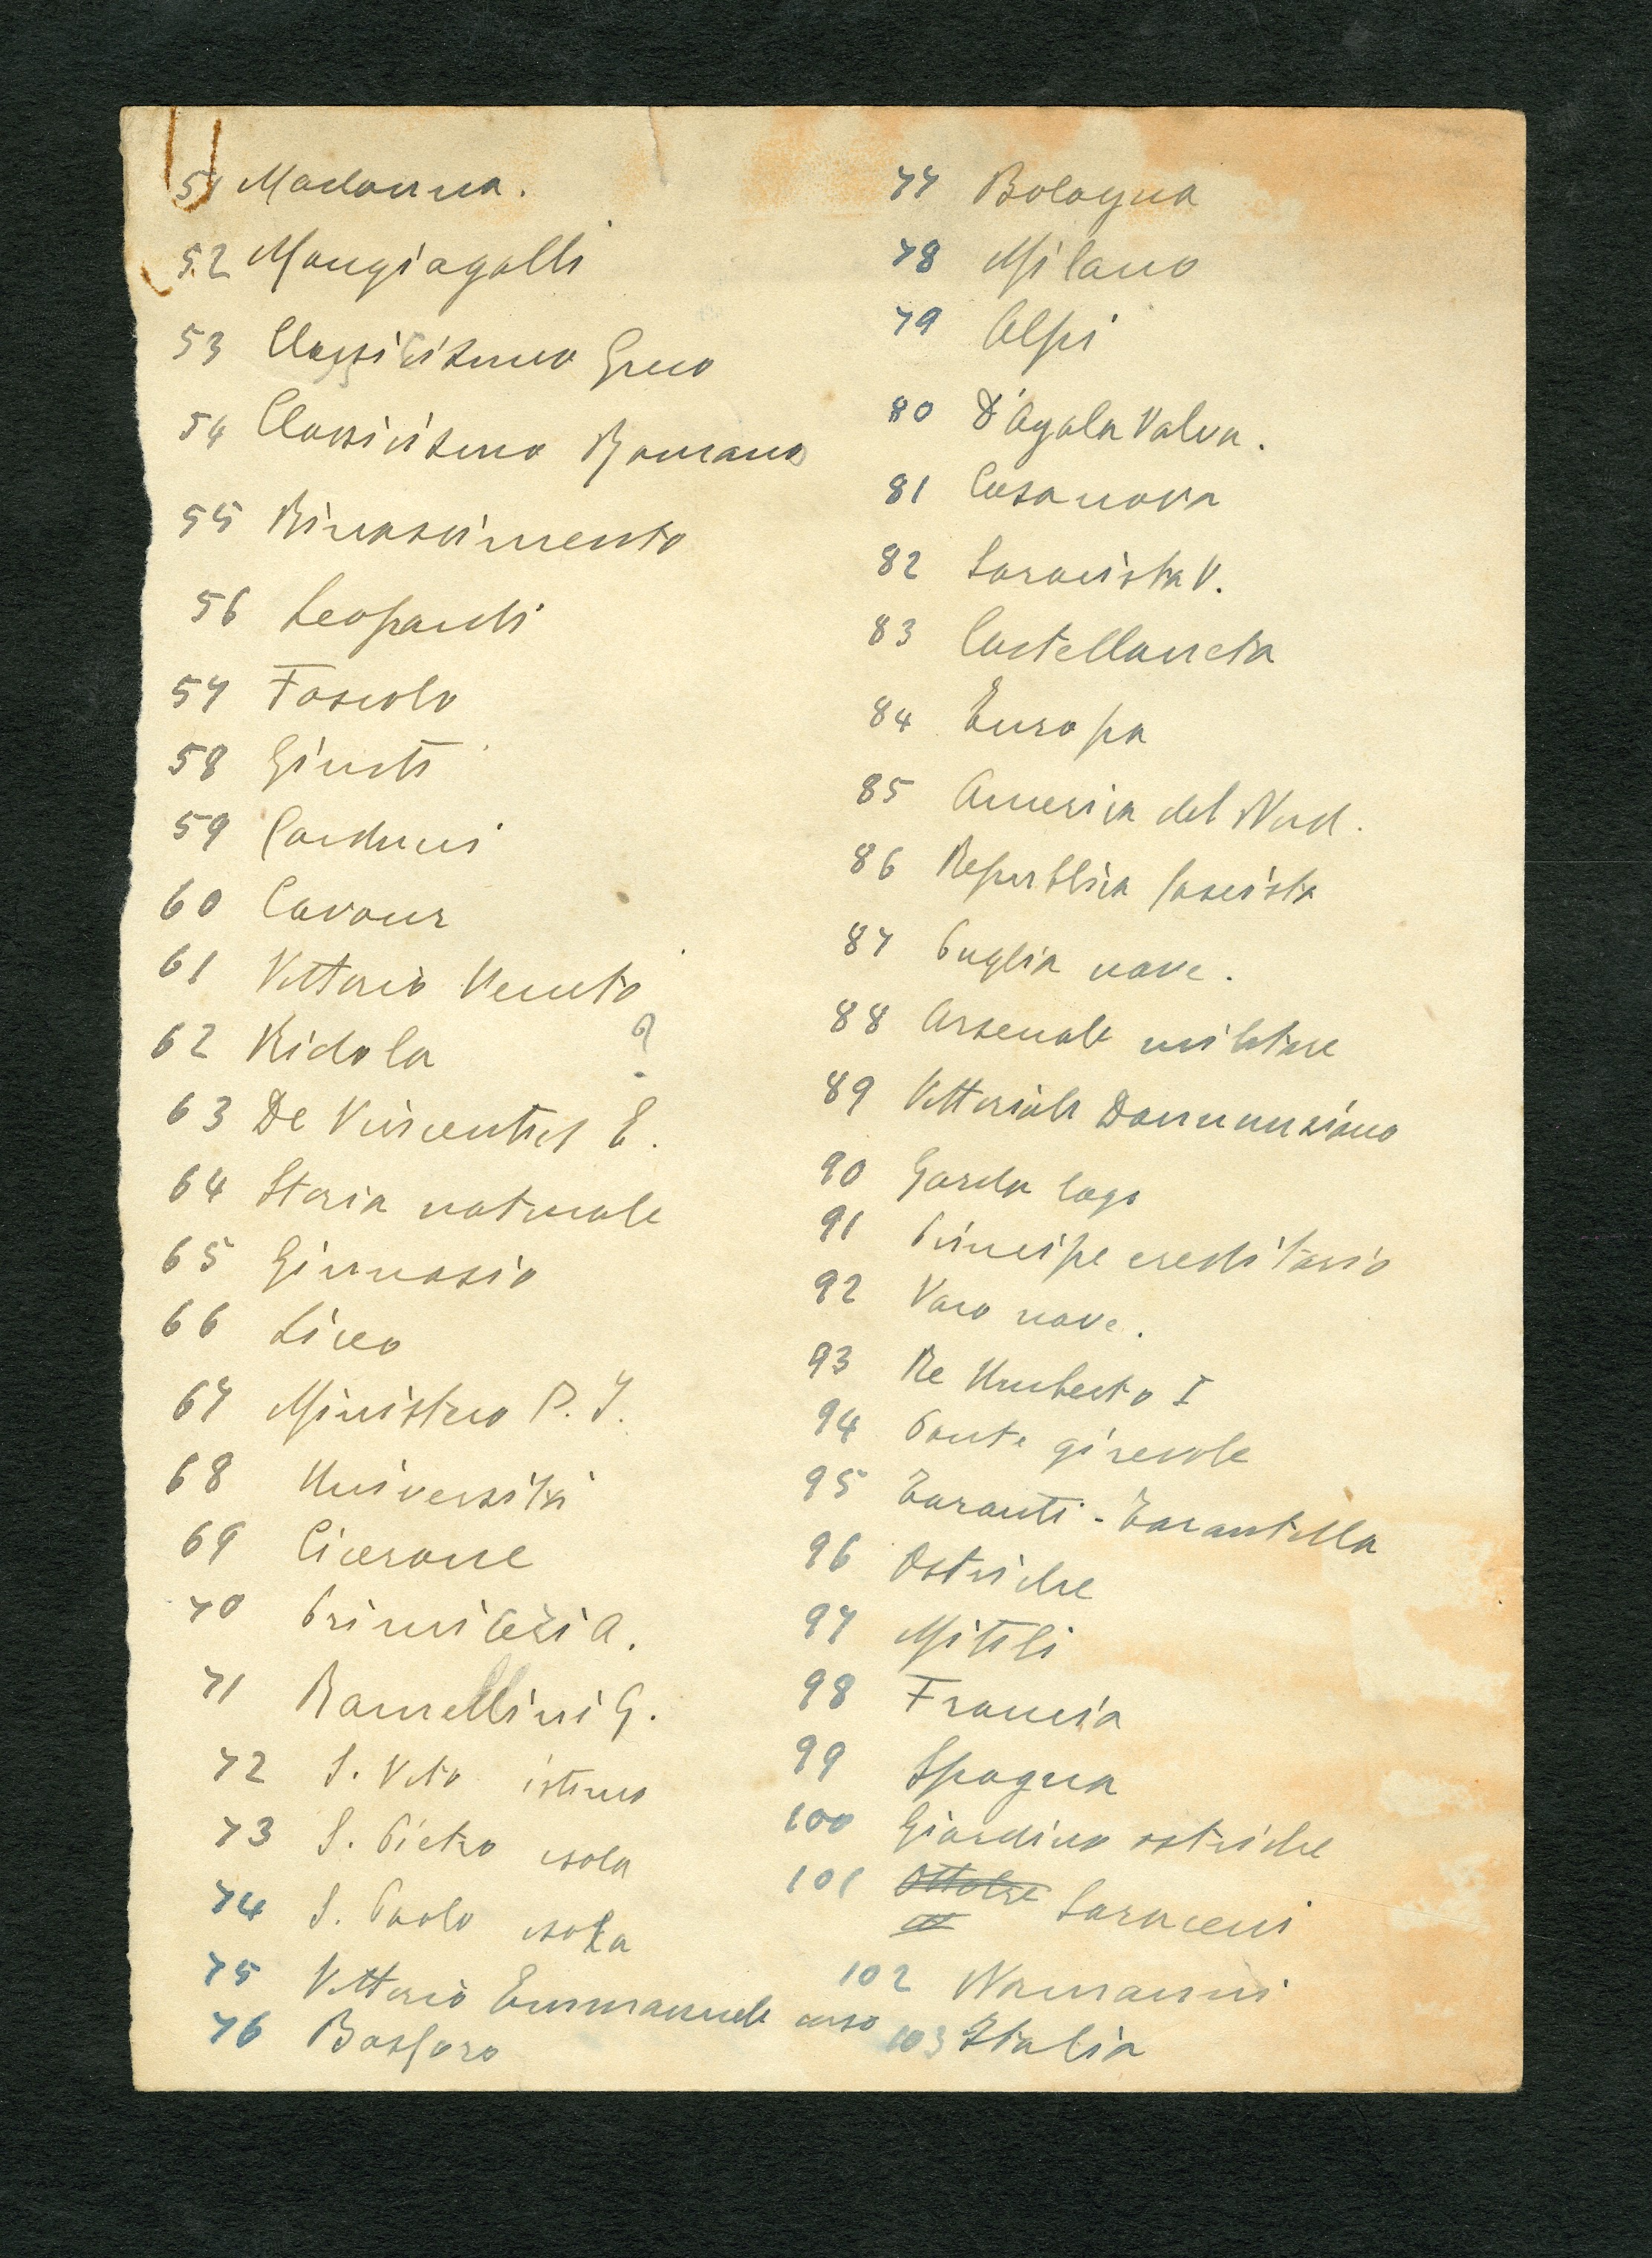 51 Madonna.
52 Mangiagalli
53 Classicismo Greco
54 Classicismo Romano
55 Rinascimento
56 Leopardi
57 Foscolo
58 Giusti
59 Carducci
60 Cavour
61 Vittorio Veneto
62 Ridola ?
63 De Vincentiis E.
64 Storia naturale
65 Ginnasio
66 Liceo
67 Ministero P. I.
68 Università
69 Cicerone
70 Primiceri A.
71 Ramellini G.
72 S. Vito istmo
73 S. Pietro isola
74 S. Paolo isola
75 Vittorio Emmanuele corso
76 Bosforo
77 Bologna
78 Milano
79 Alpi
80 D'Ayala Valva.
81 Casanova
82 V.
83 Castellaneta
84 Europa
85 America del Nord.
86 Repubblica fascista
87 Puglia nave.
88 Arsenale militare
89 Vittoriale Dannunziano
90 Garda lago
91 Principe ereditario
92 Varo nave.
93 Re Umberto I
94 Ponte girevole
95 Taranti - Tarantella
96 Ostriche
97 Mitili
98 Francia
99 Spagna
100 Giardino ostriche
101 Saraceni
102 Normanni
103 Italia